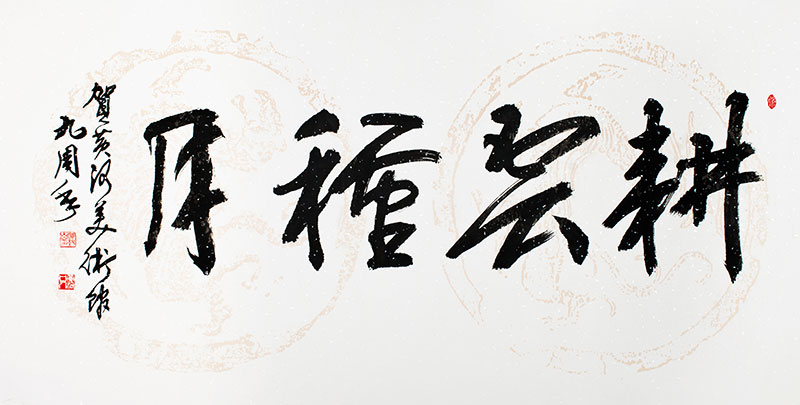 耕雲種月
賀黄河美術館
九周年